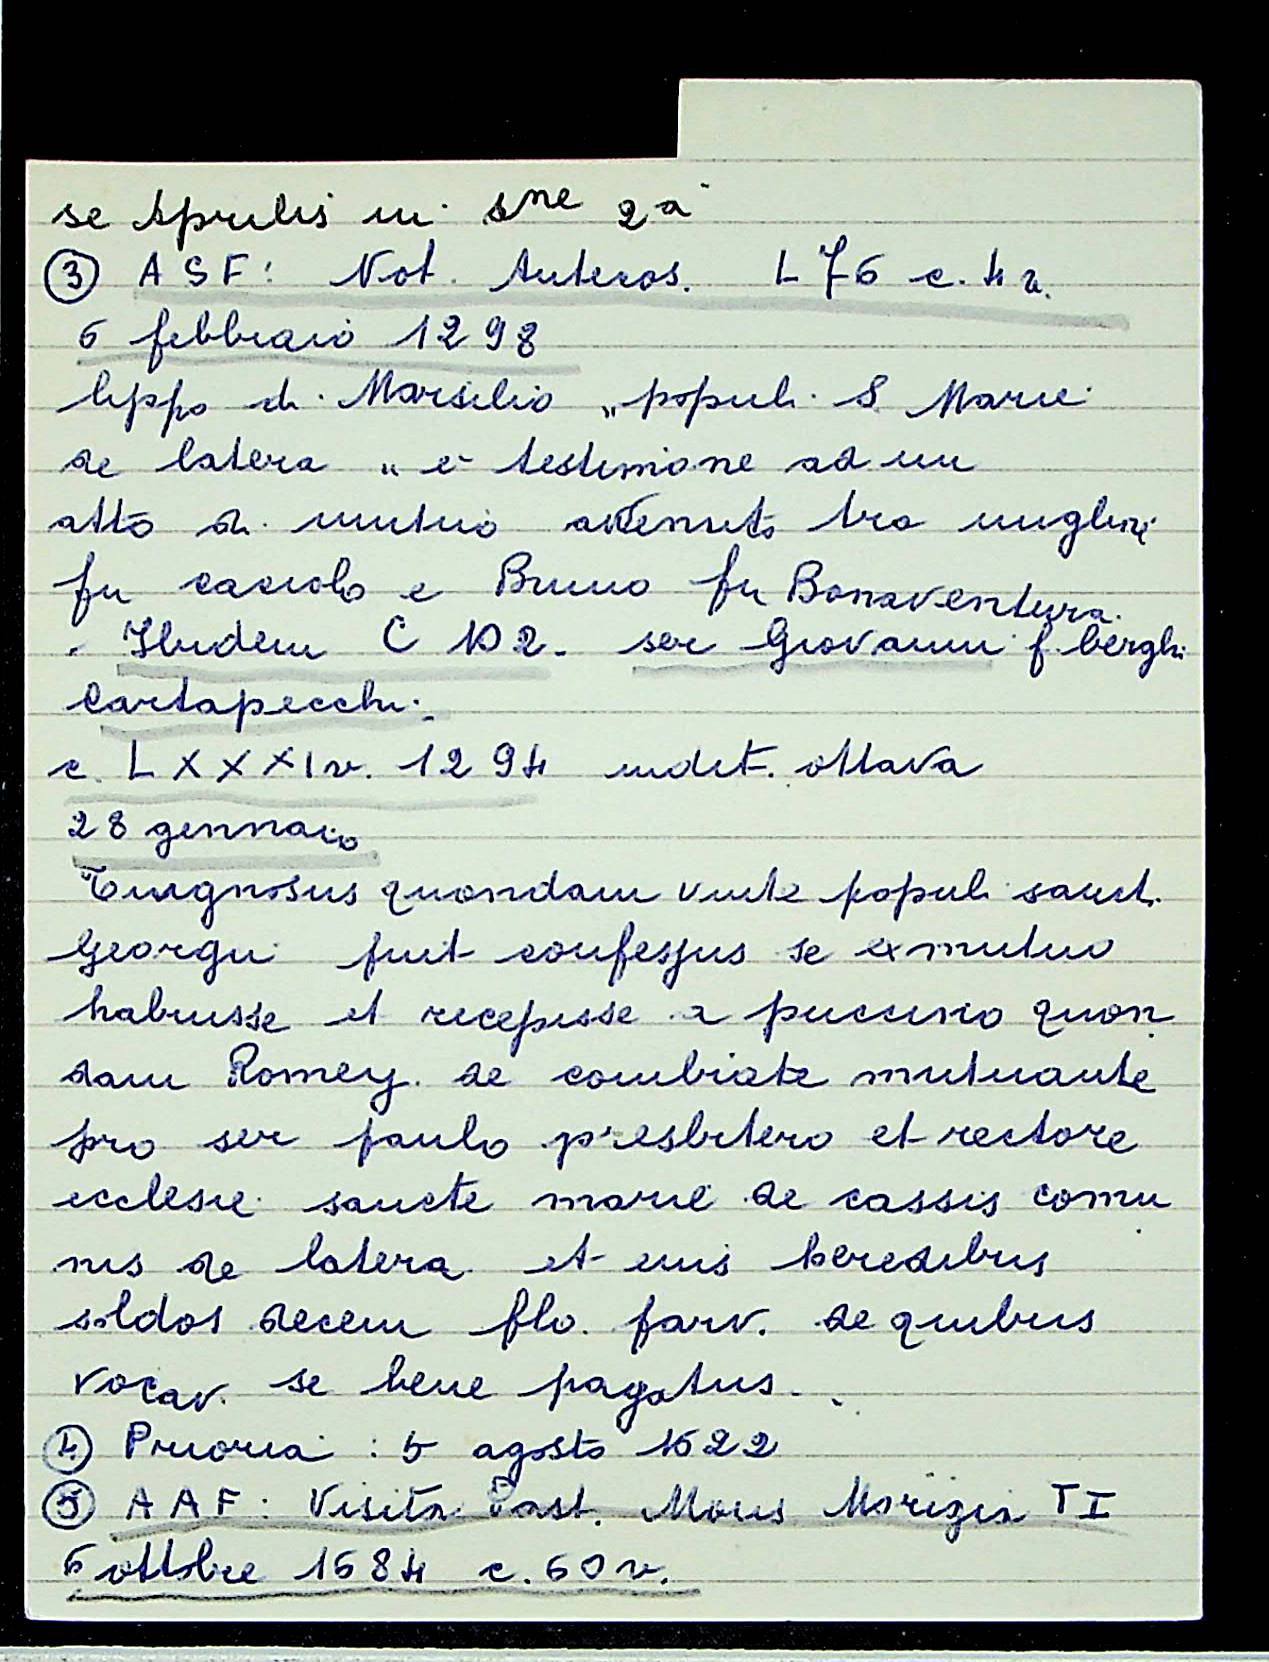 se Aprilis in. sne 2a
③ ASF: Not. Antecos. L 76 c. 4 r.
6 febbraio 1298
lippo di Marsilio „populi S Marie
de latera „ e testimone ad un
atto di mutuo avvenuto tra unghiri
fu casciolo e Bruno fu Bonaventura.
- Ibidem C 102. ser Giovanni f. berghi
Cartapecchi.
c. LXXXIv. 1294 indit. ottava
28 gennaio
Tingnosus quondam vinte populi sanct.
georgii fuit confessus se ex mutuo
habuisse et recepisse a puccino quon
dam Romey. de combiate mutuante
pro ser paulo presbitero et rectore
ecclesie sancte marie de cassis comu
nis de latera et eius heredibus
soldos decem flo. parv. de quibus
vocav. se bene pagatus.
④ Prioria : 5 agosto 1622
⑤ AAF: Visita Past. Mons Morigia T I
6 ottobre 1684 c. 60 v.